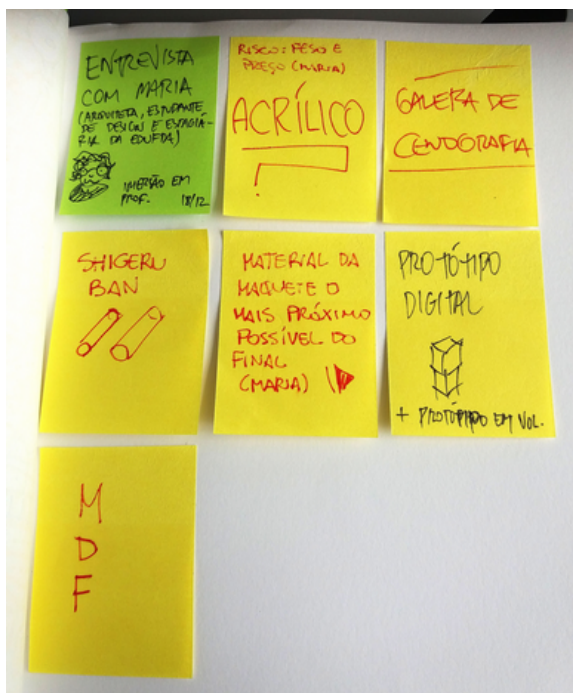 ENTREVISTA
COM MARIA
(ARQUITETA, ESTUDANTE
DE DESIGN E ESTAGIÁ-
RIA DA EDUFBA)
IMERSÃO EM
PROF. 18/12
RISCO: PESO E
PREÇO (MARIA)
ACRÍLICO
GALERA DE
CENOGRAFIA
SHIGERU
BAN
MATERIAL DA
MAQUETE O
MAIS PRÓXIMO
POSSÍVEL DO
FINAL
(MARIA)
PROTÓTIPO
DIGITAL
+ PROTÓTIPO EM VOL.
M
D
F